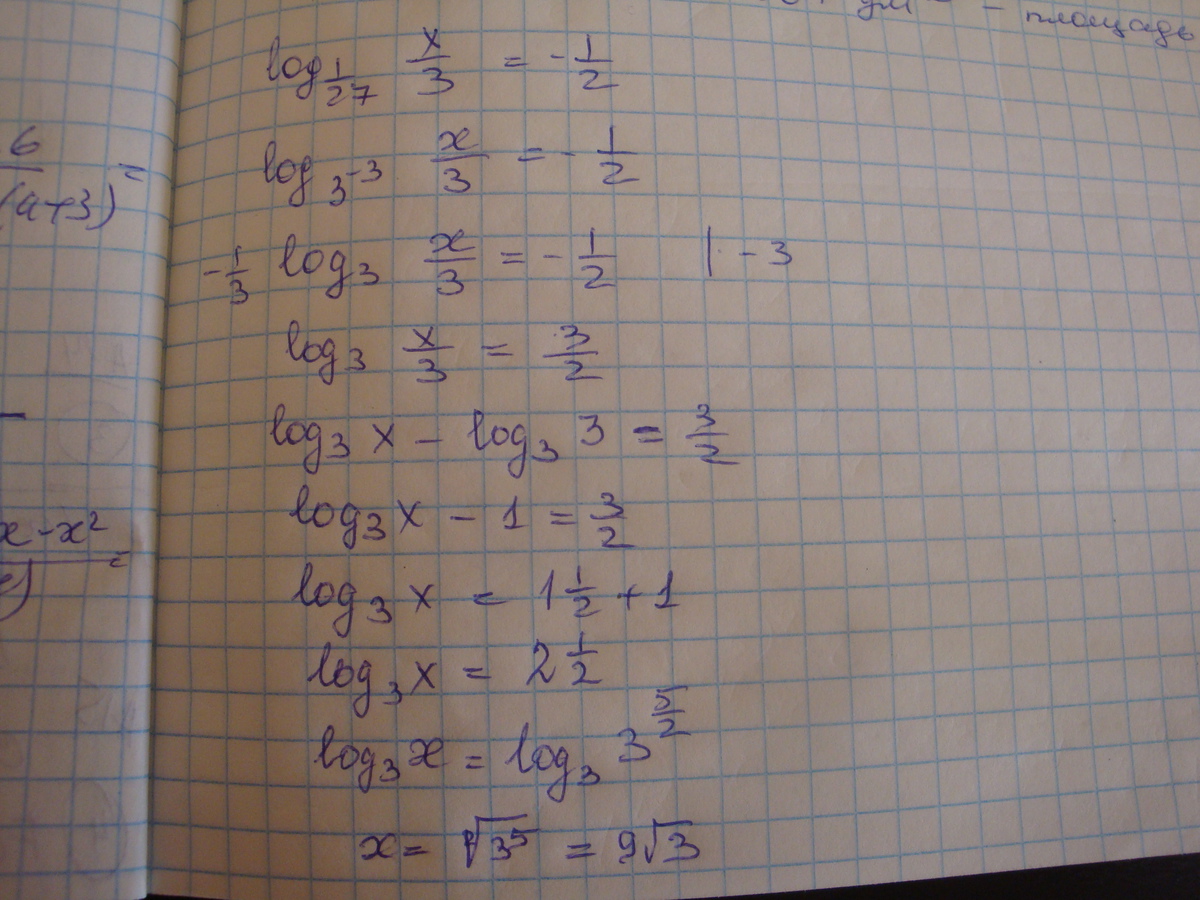 – площадь
6
(a+3) =
x - x²
=
log_{1/27} x/3 = - 1/2
log_{3^{-3}} x/3 = - 1/2
-1/3 log_3 x/3 = - 1/2 | - 3
log_3 x/3 = 3/2
log_3 x - log_3 3 = 3/2
log_3 x - 1 = 3/2
log_3 x = 1 1/2 + 1
log_3 x = 2 1/2
log_3 x = log_3 3^{5/2}
x = √3⁵ = 9√3